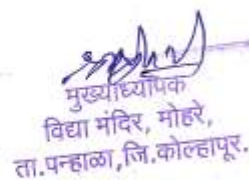 मुख्याध्यापक
विद्या मंदिर, मोहरे,
ता.पन्हाळा,जि.कोल्हापूर.